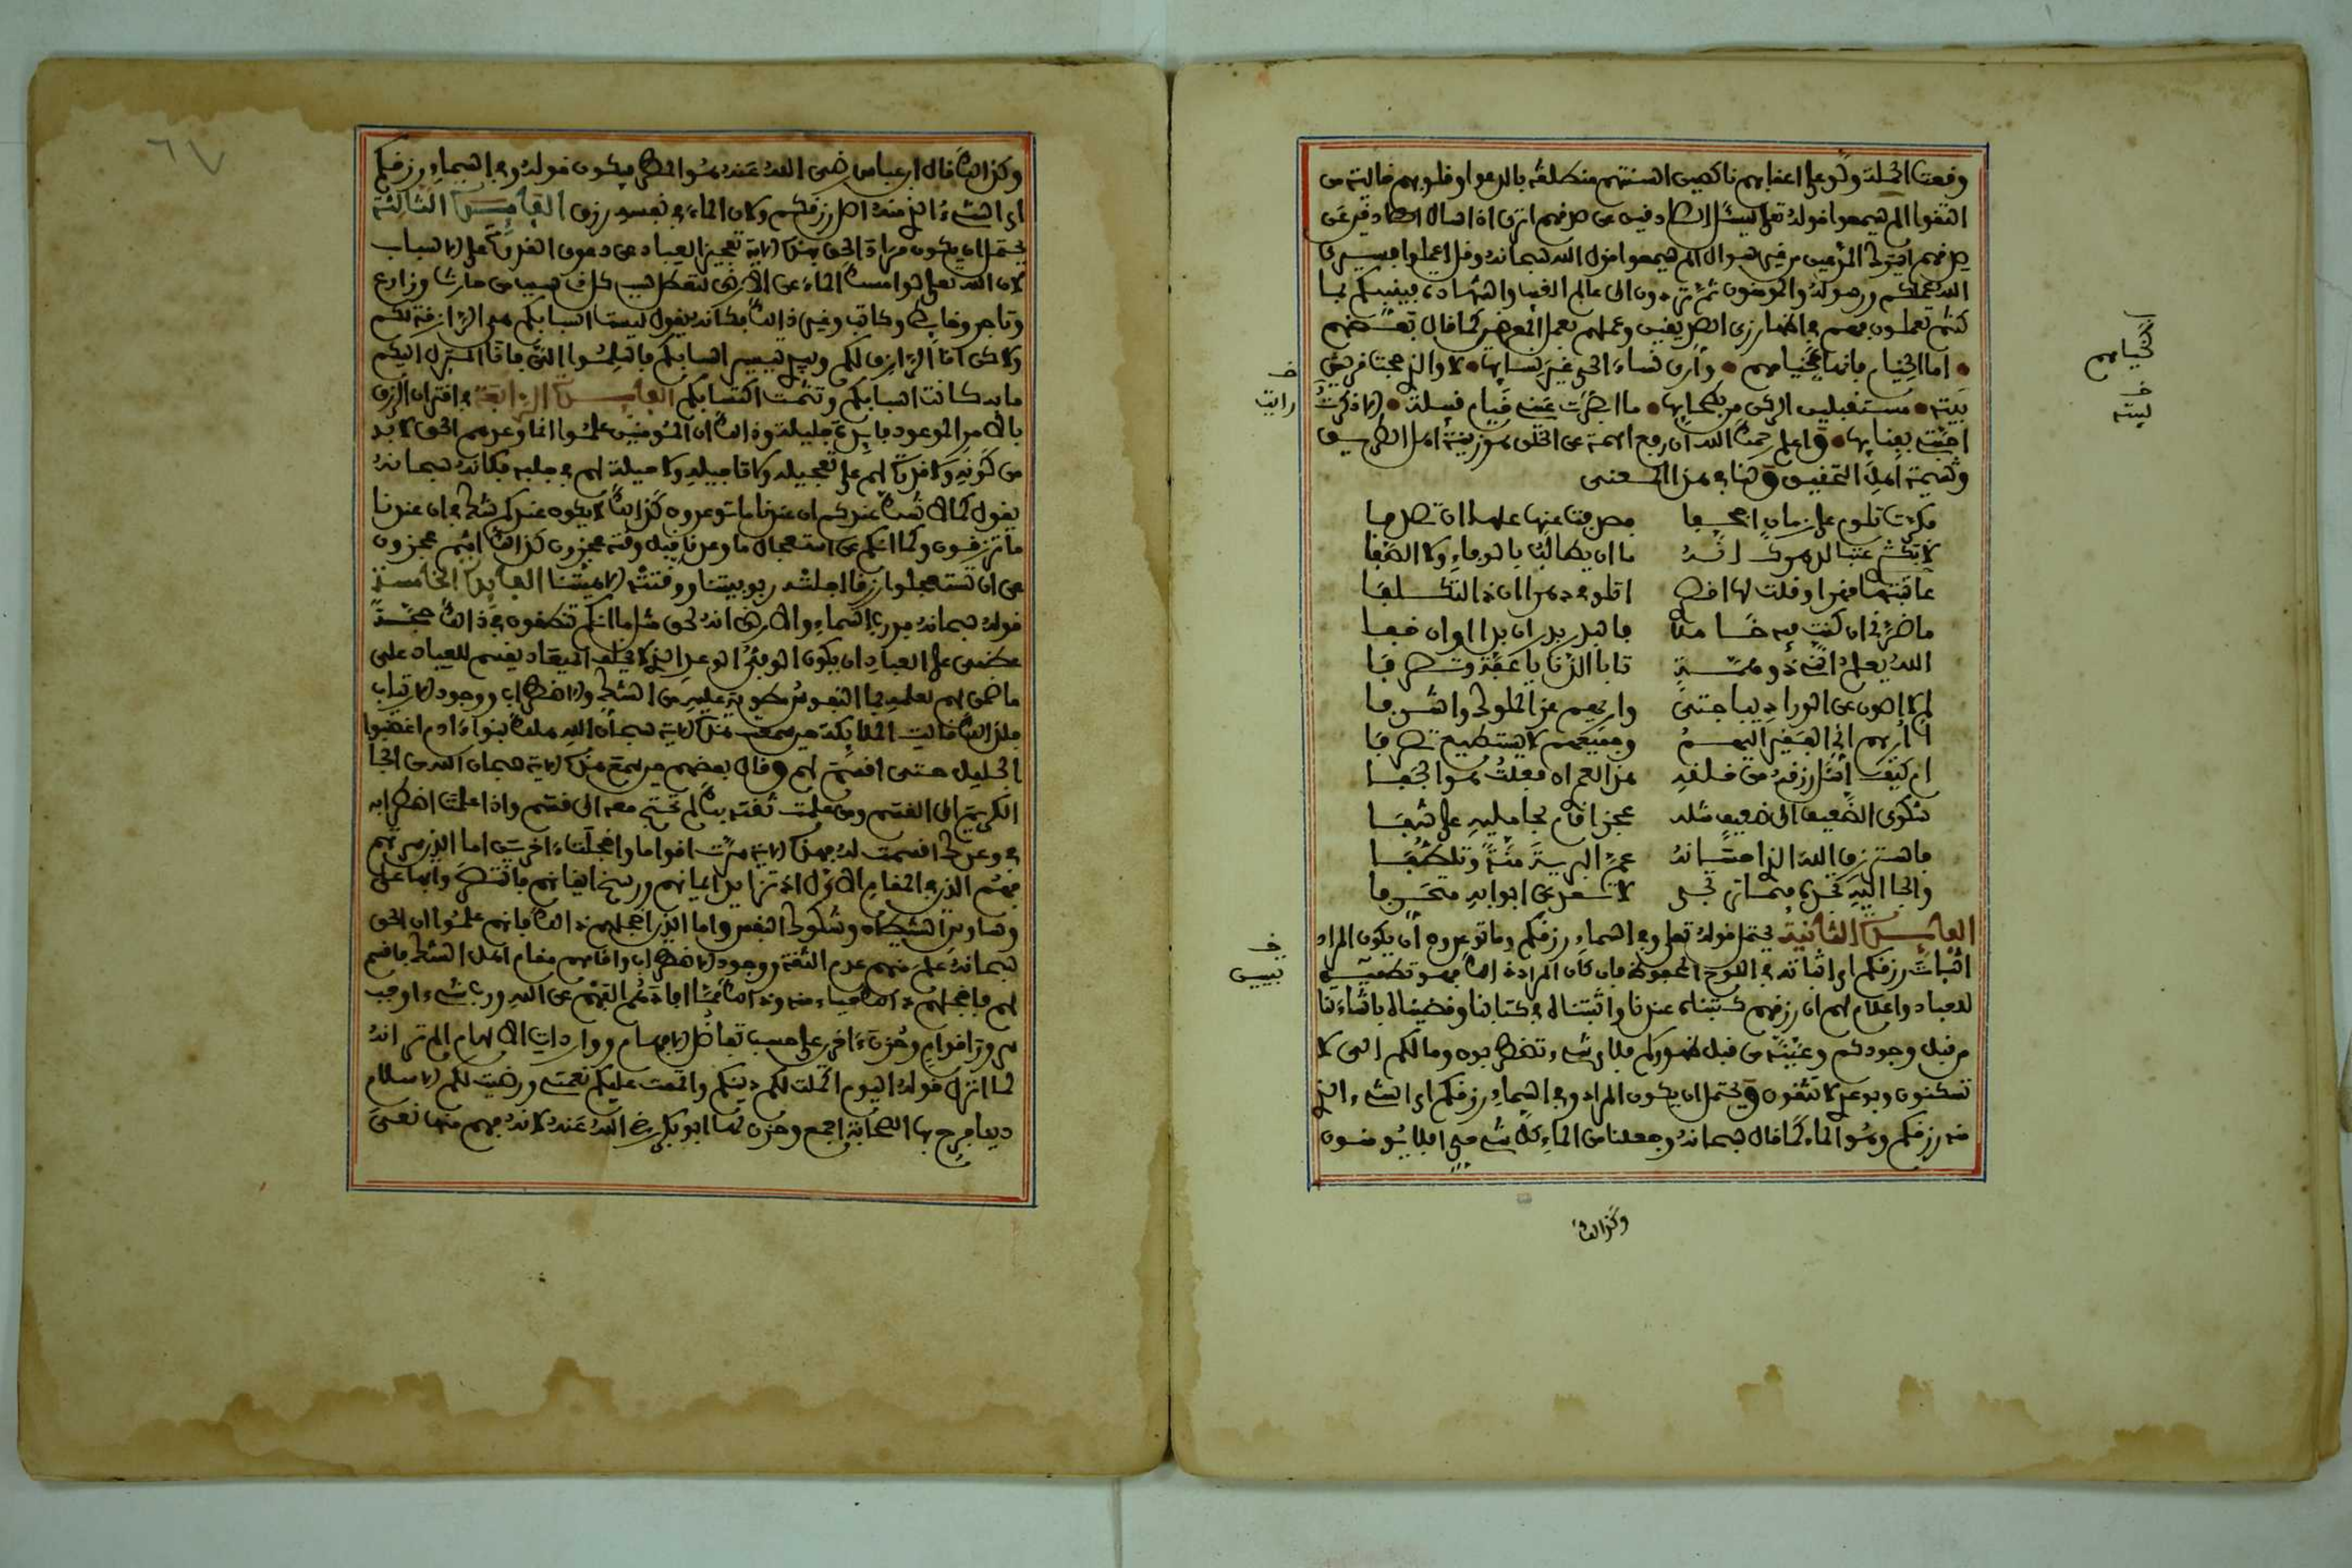 وقعت الحملة ولوا على اعقابهم ناكصين السنتهم منطلقة بالدعوا وقلوبهم خالية من
التقوا الم يسمعوا قوله تعلى ليسئل الصادقين عن صدقهم اترى اذا سال الصادقين عن
صدقهم ايترك المدعين من غير سوال الم يسمعوا قول الله سبحانه وقل اعملوا فسيرى
الله عملكم ورسوله والمومنون ثم تردون الى عالم الغيب والشهادة فينبيكم بما
كنتم تعملون فهم في اظهار زي الصادقين وعملهم عمل المعرضين كما قال بعضهم
اما الخيام فانها كخيامهم وارى نساء الحي غير نسايها لا والذي حجت قريش
بيته مستقبلين الركن من بطحايها ما ابصرت عيني خيام قبيلة الا ذكرت
احبتي بفنايها واعلم رحمك الله ان رفع الهمة عن الخلق هو زينة اهل الطريق
وشيمة اهل التحقيق ولنا في هذا المعنى
بكرت تلوم على زمان اجحفا فصدفت عنها علها ان تصدفا
لا تكثري عتبا لدهرك انه ما ان يطالب بالوفاء ولا الصفا
ما ضرني ان كنت فيه خاملا فالبدر بدر ان بدا او ان خفا
الله يعلم انني ذو همة تابا الدنايا عفة وتظرفا
لم لا اصون عن الورا ديباجتي واريهم عز الملوك واشرفا
ااريهم اني الفقير اليهم وجميعهم لا يستطيع تصرفا
ام كيف اسئل رزقه من خلقه هذا لعمري ان فعلت هو الجفا
شكوى الضعيف الى ضعيف مثله عجز اقام بحامليه على شفا
فاسترزق الله الذي احسانه عم البرية منة وتلطفا
والجا اليه تجده فيما ترتجي لا تعد عن ابوابه متحرفا
الفايدة الثانية يحتمل قوله تعلى وفي السماء رزقكم وما توعدون ان يكون المراد
اثبات رزقكم اي اثباته في اللوح المحفوظ فان كان المراد ذلك فهو تطمين
للعباد واعلام لهم ان رزقهم كتبناه عندنا واثبتناه في كتابنا وقضيناه بئاياتنا
من قبل وجودكم وعيناه من قبل ظهوركم فلاي شيء تضطربون وما لكم الي لا
تسكنون وبوعدي لا تثقون ويحتمل ان يكون المراد وفي السماء رزقكم اي الشيء الذي
منه رزقكم وهو الماء كما قال سبحانه وجعلنا من الماء كل شيء حي افلا يومنون
وكذلك
لخيامهم
خ
ليته
خ
رايت
خ
تبيين
٦٧
وكذلك قال ابن عباس رضي الله عنه هو المطر فيكون قوله وفي السماء رزقكم
اي الشيء الذي منه اصل رزقكم ولان الماء في نفسه رزق الفايدة الثالثة
يحتمل ان يكون مراد الحق بهذه الاية تعجيز العباد عن دعوى القدرة على الاسباب
لان الله تعلى لو امسك الماء عن الارض لتعطل سبب كل ذي سبب من حارث وزارع
وتاجر وخايط وكاتب وغير ذلك فكانه يقول ليست اسبابكم هي الرازقة لكم
ولاكن انا الرازق لكم وبيدي تيسير اسبابكم فاني انا المنزل اليكم
ما به كانت اسبابكم وتمت اكتسابكم الفايدة الرابعة في اقتران الرزق
بالامر الموعود فايدة جليلة وذلك ان المومنين علموا ان ما وعدهم الحق لا بد
من كونه ولا قدرة لهم على تعجيله ولا تاجيله ولا حيلة لهم في جلبه فكانه سبحانه
يقول كما لا شك عندكم ان عندنا ما توعدون كذلك لا يكون عندكم شك في ان عندنا
ما ترزقون وكما انكم عن استعجال ما وعدنا قبل وقته عاجزون كذلك انتم عاجزون
عن ان تستعجلوا رزقا اجلته ربوبيتنا ووقتته الاهيتنا الفايدة الخامسة
قوله سبحانه فورب السماء والارض انه لحق مثل ما انكم تنطقون في ذلك حجة
عظمى على العباد ان يكون الوفي الوعد الذي لا يخلف الميعاد يقسم للعباد على
ما ضمن لهم لعلمه بما النفوس منطوية عليه من الشك والاضطراب ووجود الارتياب
فلذلك قالت الملايكة حين سمعت هذه الاية هلك بنوا ءادم اغضبوا
الجليل حتى اقسم لهم وقال بعضهم حين سمع هذه الاية سبحان الله من الجا
الكريم الى القسم ومن علمت ثقته بك لم تحتج معه الى قسم واذا علمت اضطرابه
في وعدك اقسمت له فهذه الاية سرت اقواما واخجلت ءاخرين اما الذين سرتهم
فهم الذين في المقام الاول اذ تزايد ايمانهم ورسخ ايقانهم فانتصروا بها على
وساوس الشيطان وشكوك النفس واما الذين اخجلهم ذلك فانهم علموا ان الحق
سبحانه علم منهم عدم الثقة ووجود الاضطراب واقامهم مقام اهل الشك فاقسم
لهم فاخجلهم ذلك حياء منه وذلك مما افادهم الفهم عن الله ورب شيء اوجب
سرور اقوام وحزن ءاخرين على حسب تفاضل الافهام وواردات الالهام الم تر انه
لما انزل قوله اليوم اكملت لكم دينكم واتممت عليكم نعمتي ورضيت لكم الاسلام
دينا فرح بها الصحابة اجمع وحزن لها ابو بكر رضي الله عنه لانه فهم منها نعي